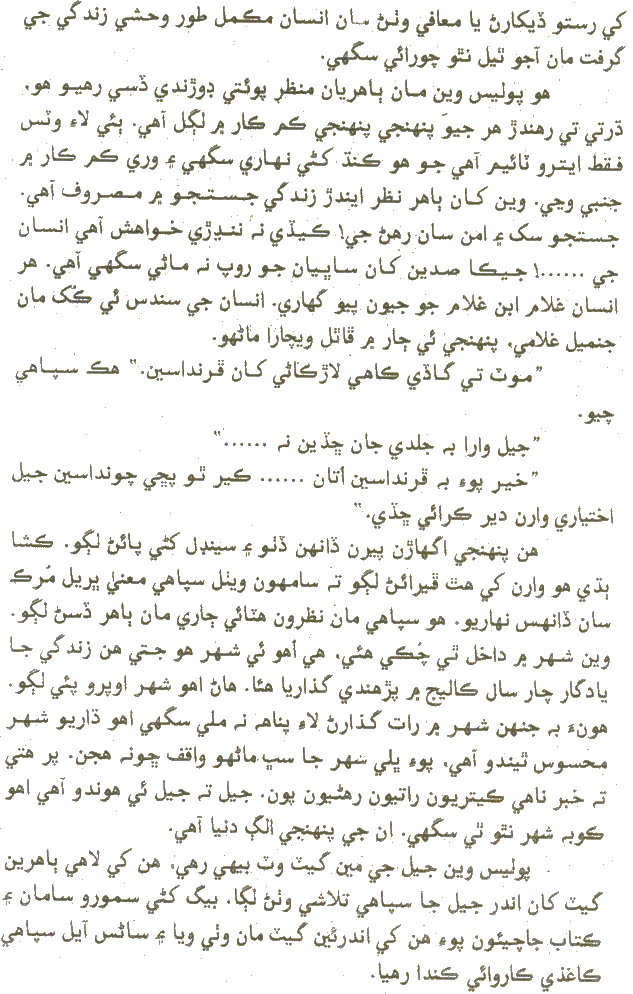 کي رستو ڏيکارڻ يا معافي وٺڻ سان انسان مڪمل طور وحشي زندگي جي
گرفت مان آجو ٿيل نٿو چورائي سگهي.
هو پوليس وين مان ٻاهريان منظر پوئتي ڊوڙندي ڏسي رهيو هو،
ڌرتي تي رهندڙ هر جيوَ پنهنجي پنهنجي ڪم ڪار ۾ لڳل آهي. ٻئي لاءِ وٽس
فقط ايترو ٽائيم آهي جو هو ڪنڌ کڻي نهاري سگهي ۽ وري ڪم ڪار ۾
جنبي وڃي. وين کان ٻاهر نظر ايندڙ زندگي جستجو ۾ مصروف آهي.
جستجو سک ۽ امن سان رهڻ جي! ڪيڏي نہ ننڍڙي خواهش آهي انسان
جي ......! جيڪا صدين کان ساڀيان جو روپ نہ ماڻي سگهي آهي. هر
انسان غلام ابن غلام جو جيون پيو گهاري. انسان جي سندس ئي ڪُک مان
جنميل غلامي، پنهنجي ئي ڄار ۾ ڦاٿل ويچارا ماڻهو.
”موٽ تي گاڏي ڪاهي لاڙڪاڻي کان ڦرنداسين.“ هڪ سپاهي
چيو.
”جيل وارا بہ جلدي جان ڇڏين نہ ......“
”خير پوءِ بہ ڦرنداسين اُتان ...... ڪير ٿو پڇي چونداسين جيل
اختياري وارن دير ڪرائي ڇڏي.“
هن پنهنجي اگهاڙن پيرن ڏانهن ڏٺو ۽ سينڊل کڻي پائڻ لڳو. ڪشا
ٻڌي هو وارن کي هٿ ڦيرائڻ لڳو تہ سامهون ويٺل سپاهي معنيٰ ڀريل مُرڪ
سان ڏانهس نهاريو. هو سپاهي مان نظرون هٽائي ڄاري مان ٻاهر ڏسڻ لڳو.
وين شهر ۾ داخل ٿي چُڪي هئي، هي اُهو ئي شهر هو جتي هن زندگي جا
يادگار چار سال ڪاليج ۾ پڙهندي گذاريا هئا. هاڻ اهو شهر اوپرو پئي لڳو.
هونءَ بہ جنهن شهر ۾ رات گذارڻ لاءِ پناهہ نہ ملي سگهي اهو ڌاريو شهر
محسوس ٿيندو آهي، پوءِ ڀلي شهر جا سڀ ماڻهو واقف ڇونہ هجن. پر هتي
تہ خبر ناهي ڪيتريون راتيون رهڻيون پون. جيل تہ جيل ئي هوندو آهي اهو
ڪوبہ شهر نٿو ٿي سگهي. ان جي پنهنجي الڳ دنيا آهي.
پوليس وين جيل جي مين گيٽ وٽ بيهي رهي، هن کي لاهي ٻاهرين
گيٽ کان اندر جيل جا سپاهي تلاشي وٺڻ لڳا. بيگ کڻي سمورو سامان ۽
ڪتاب جاچيئون پوءِ هن کي اندرئين گيٽ مان وٺي ويا ۽ ساڻس آيل سپاهي
ڪاغذي ڪاروائي ڪندا رهيا.